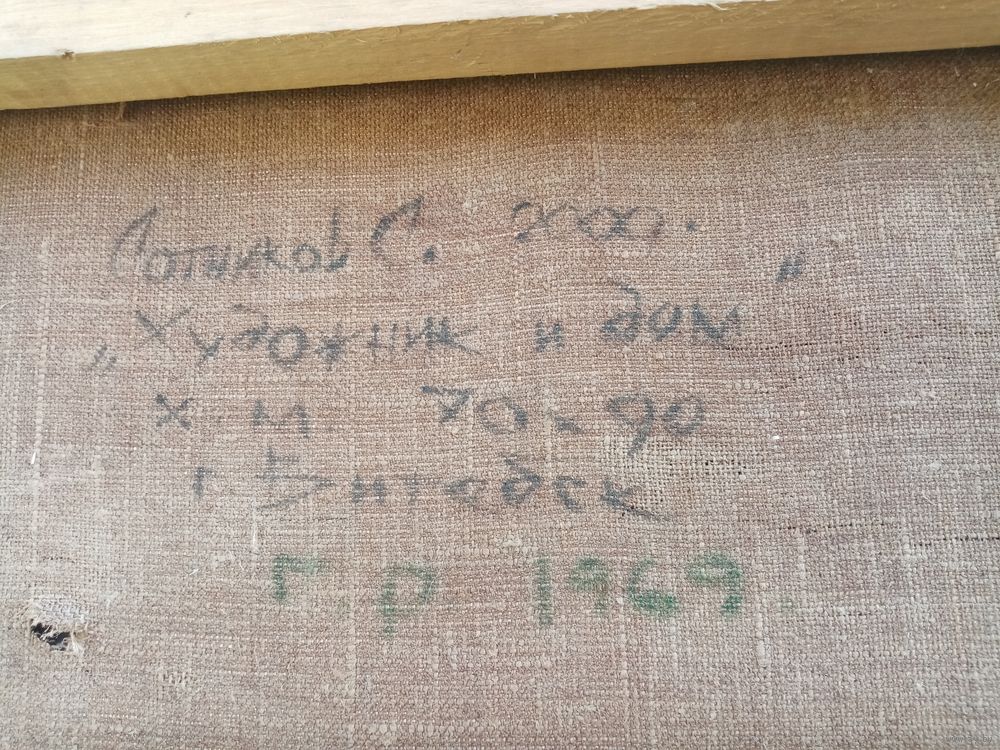 Сотников С. 2000г.
„Художник и дом"
х. м. 70х90
г. Витебск
г. р. 1969.